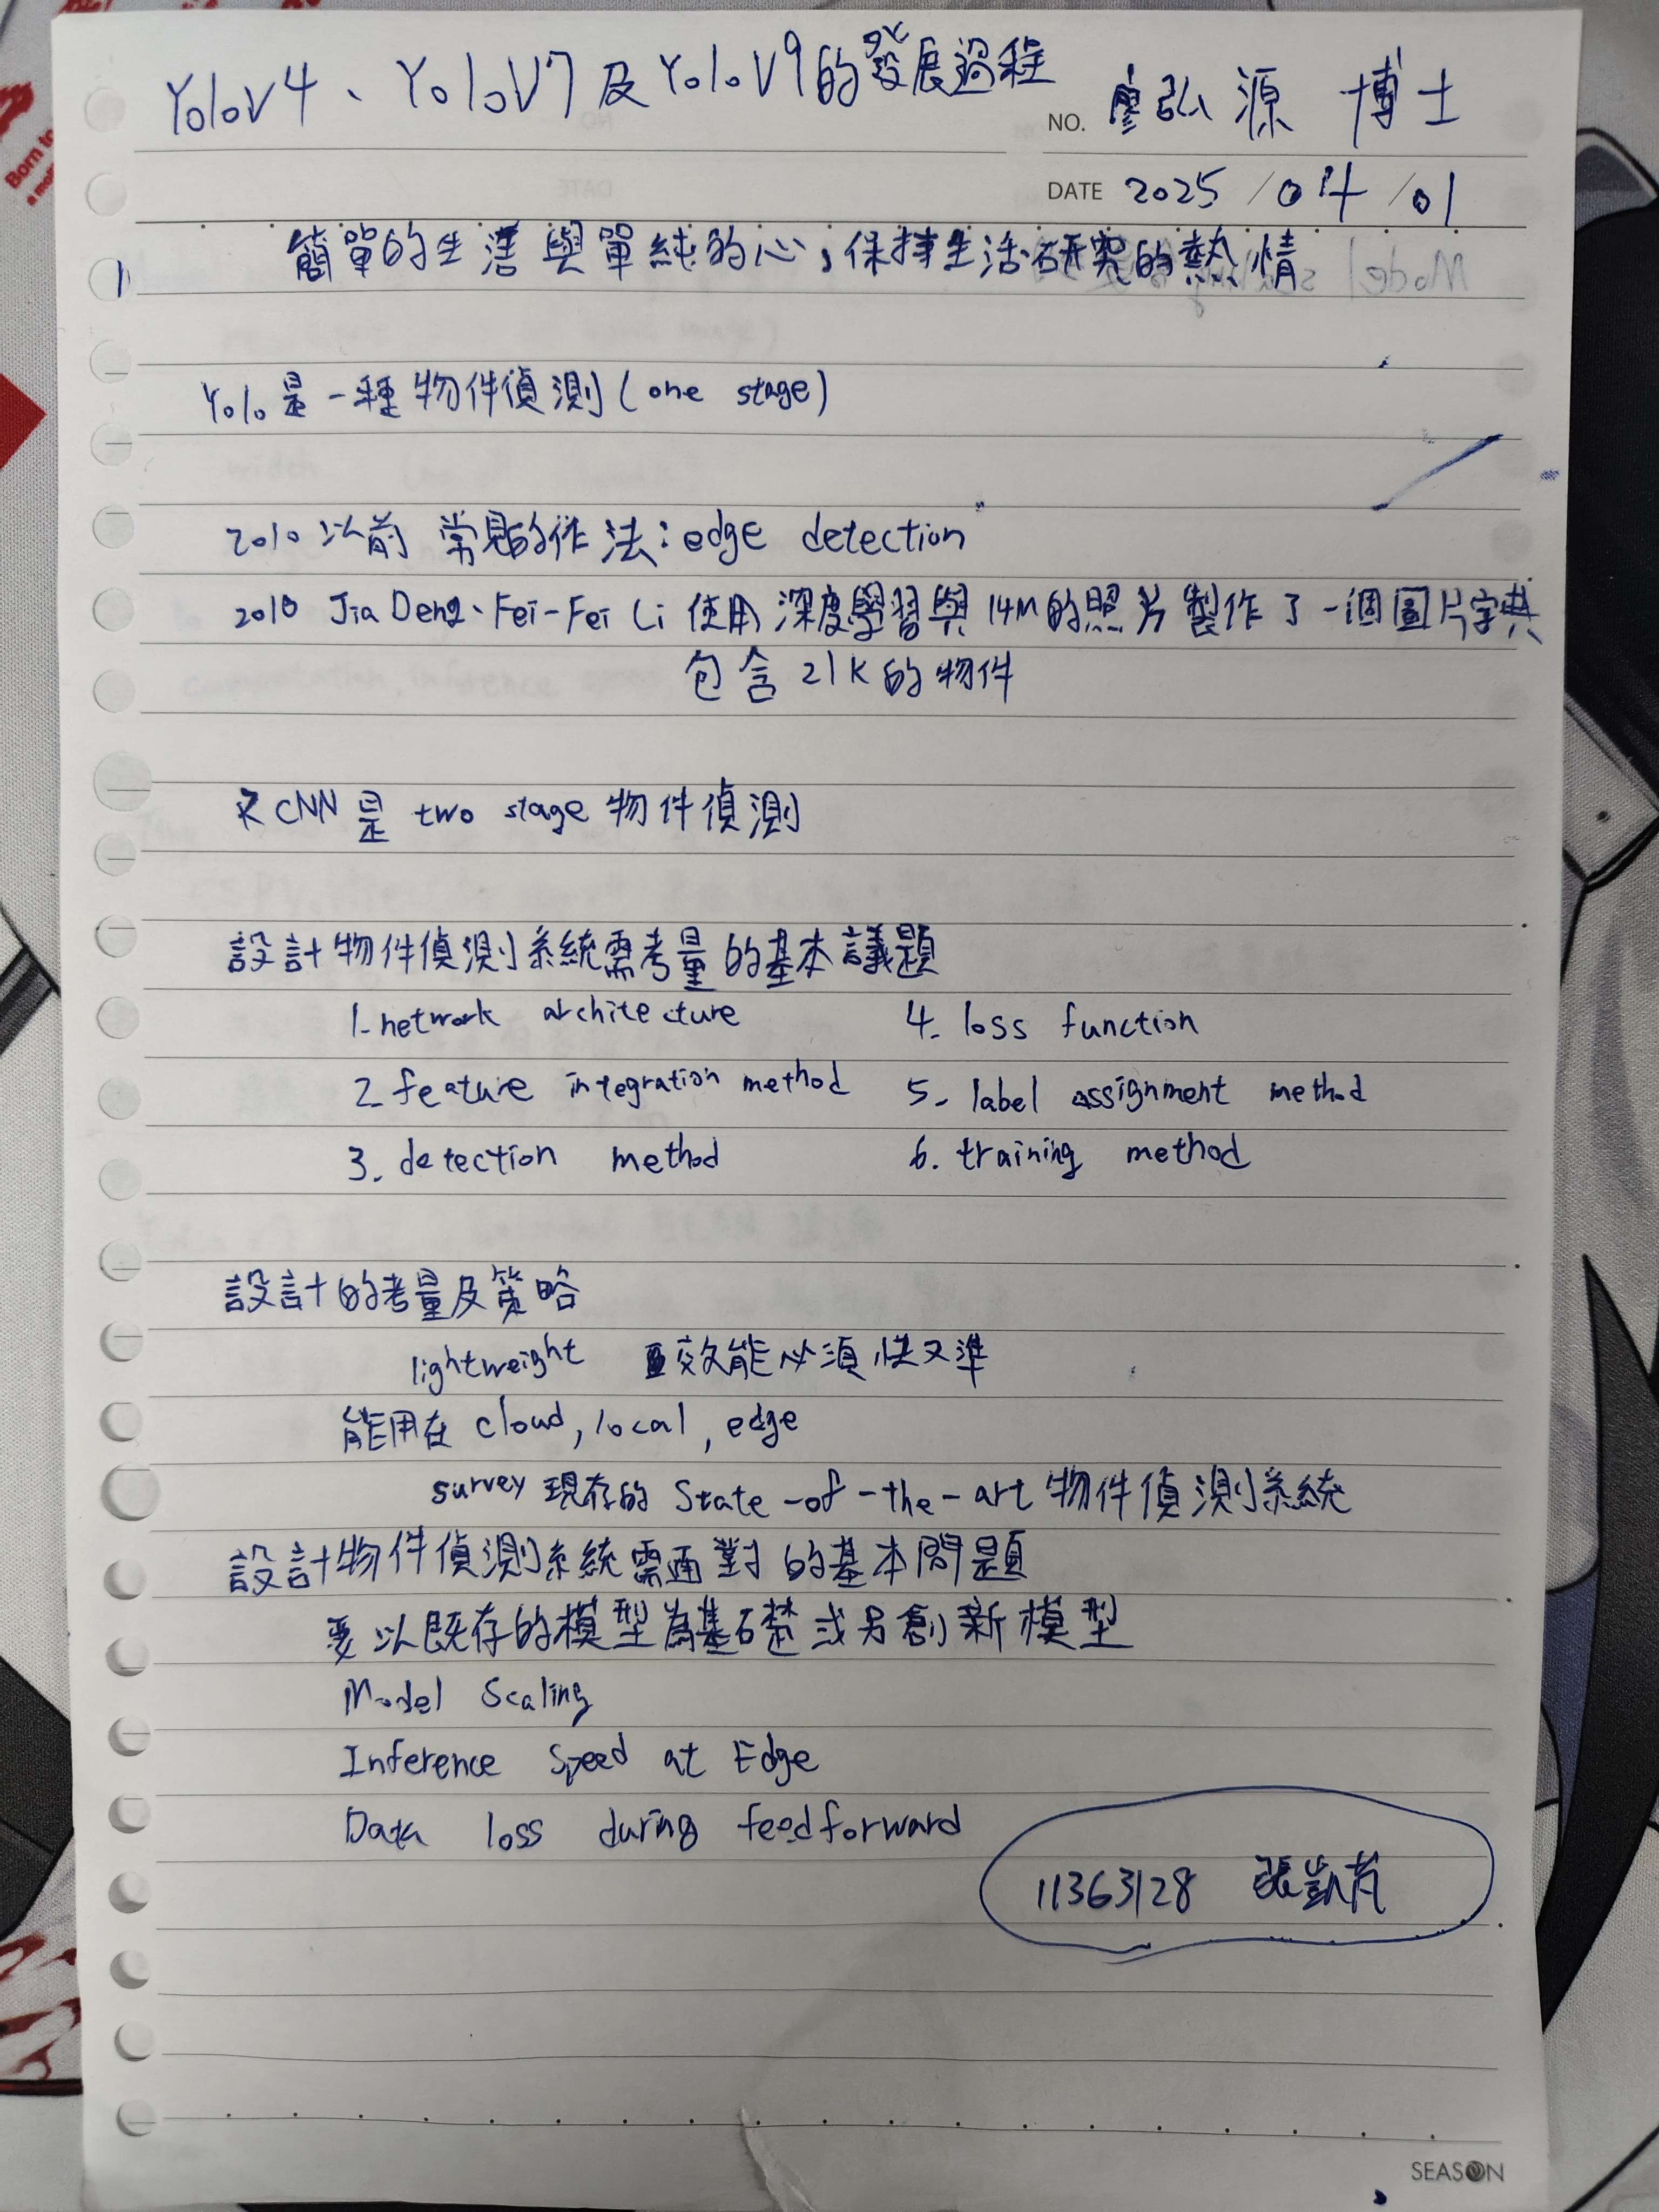 Yolov4、YoloV7及YoloV9的發展過程
NO. 廖弘源 博士
DATE 2025/04/01
簡單的生活與單純的心,保持生活研究的熱情
Yolo是一種物件偵測(one stage)
2010以前 常見的作法:edge detection
2010 Jia Deng、Fei-Fei Li 使用深度學習與14M的照片製作了一個圖片字典
包含21K的物件
RCNN是 two stage 物件偵測
設計物件偵測系統需考量的基本議題
1. network architecture 4. loss function
2. feature integration method 5. label assignment method
3. detection method 6. training method
設計的考量及策略
lightweight 效能必須快又準
能用在 cloud, local, edge
survey 現存的 State-of-the-art 物件偵測系統
設計物件偵測系統需面對的基本問題
要以既存的模型為基礎或另創新模型
Model Scaling
Inference Speed at Edge
Data loss during feedforward
11363128 張凱
SEASON